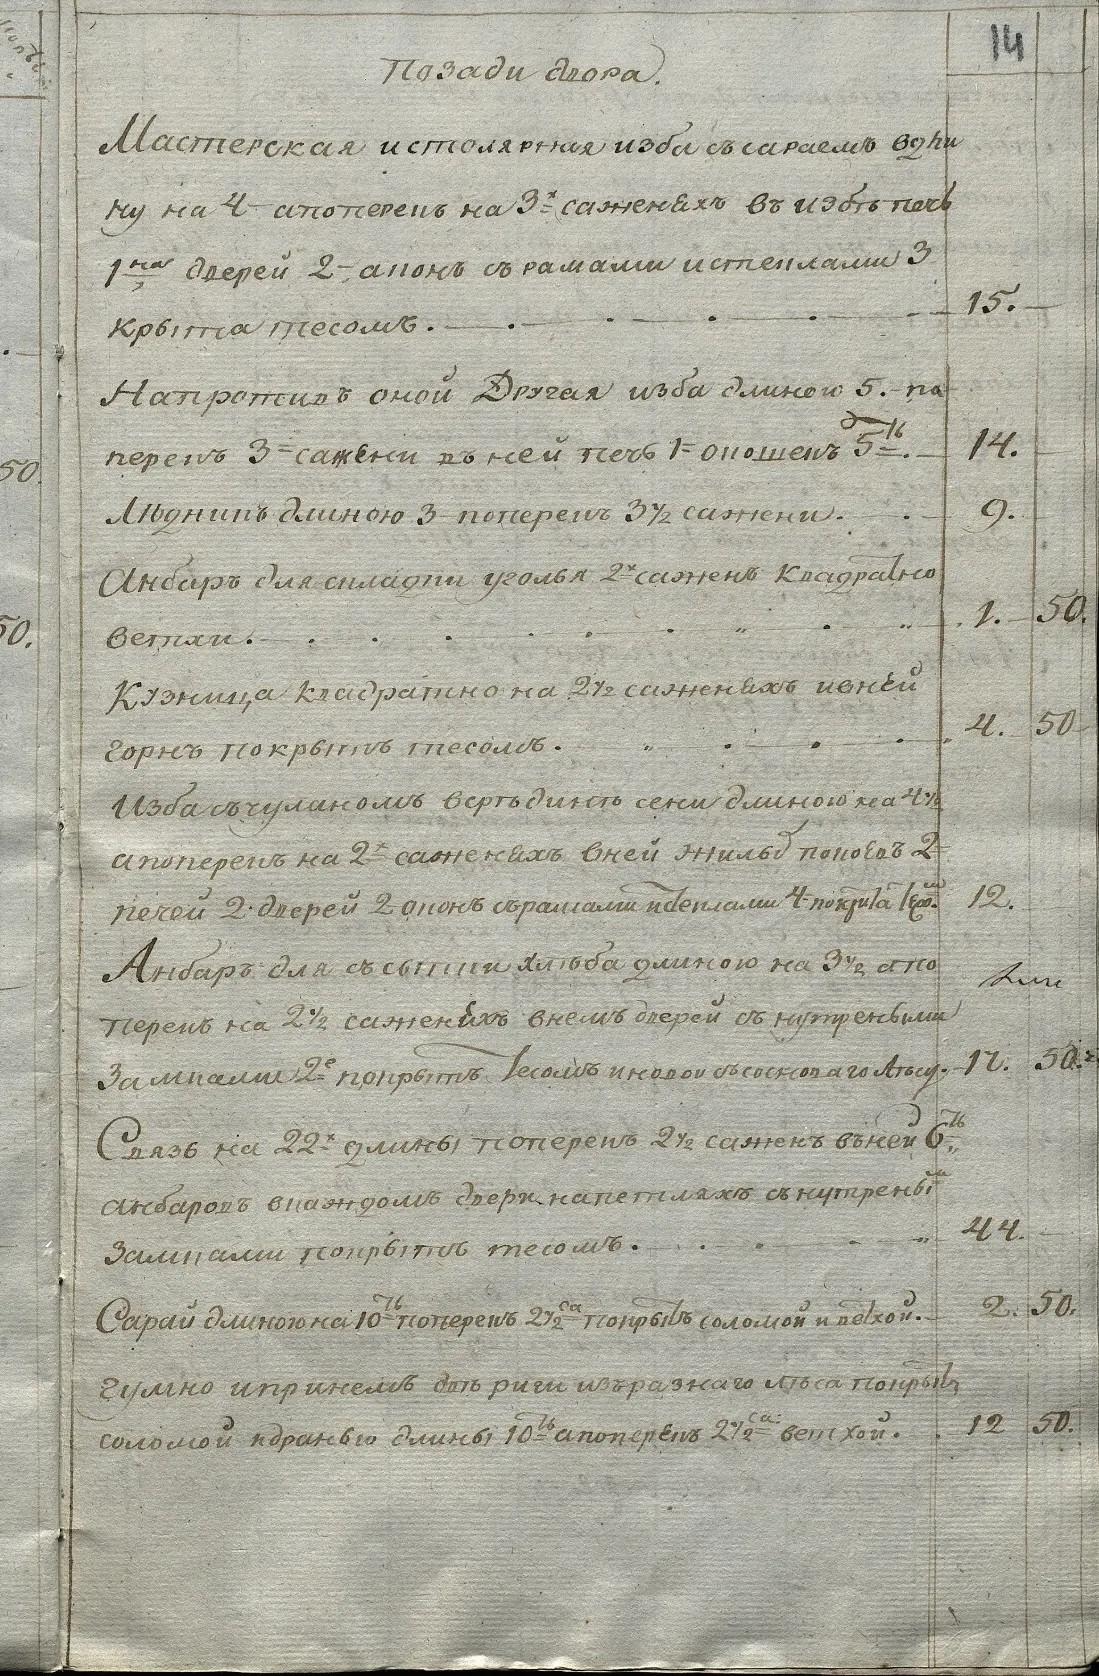 14
Позади двора.
Мастерская истолярная изба съ сараемъ вдли
ну на 4 апоперекъ на 3х саженяхъ въ избѣ печь
1на дверей 2 аконъ съ рамами истеклами 3
крыта тесомъ. 15.
Напротивъ оной Другая изба длиною 5. по
перекъ 3 сажени въ ней печь 1 окошекъ 5ть. 14.
Лѣдникъ длиною 3 поперекъ 3 1/2 сажени. 9.
Анбаръ для складки уголья 2х саженъ квадратно
ветхи. 1. 50.
Кузница квадратно на 2 1/2 саженяхъ ивней
горнъ покрытъ тесомъ. 4. 50
Изба съчуланомъ всредине сени длиною на 4 1/2
апоперекъ на 2х саженяхъ вней жилыхъ покоевъ 2
печей 2 дверей 2 оконъ срамами истеклами 4 покрыта тесом. 12.
Анбаръ для ссыпки хлѣба длиною на 3 1/2 апо
перекъ на 2 1/2 саженяхъ внемъ дверей съ нутреными
Замками 2е покрытъ тесомъ иновой съсосноваго лѣсу. 17. 50.
Связь на 22х длины поперекъ 2 1/2 саженъ въней 6ть
анбаровъ вкаждомъ двери напетляхъ сънутреными
Замками покрытъ тесомъ. 44.
Сарай длиною на 10ть поперекъ 2 1/2 са покрытъ соломой и ветхой. 2. 50.
гумно ипринемъ двѣ риги изъразнаго лѣса покрыта
соломой идранью длины 10ть апоперекъ 2 1/2 са: ветхой. 12 50.